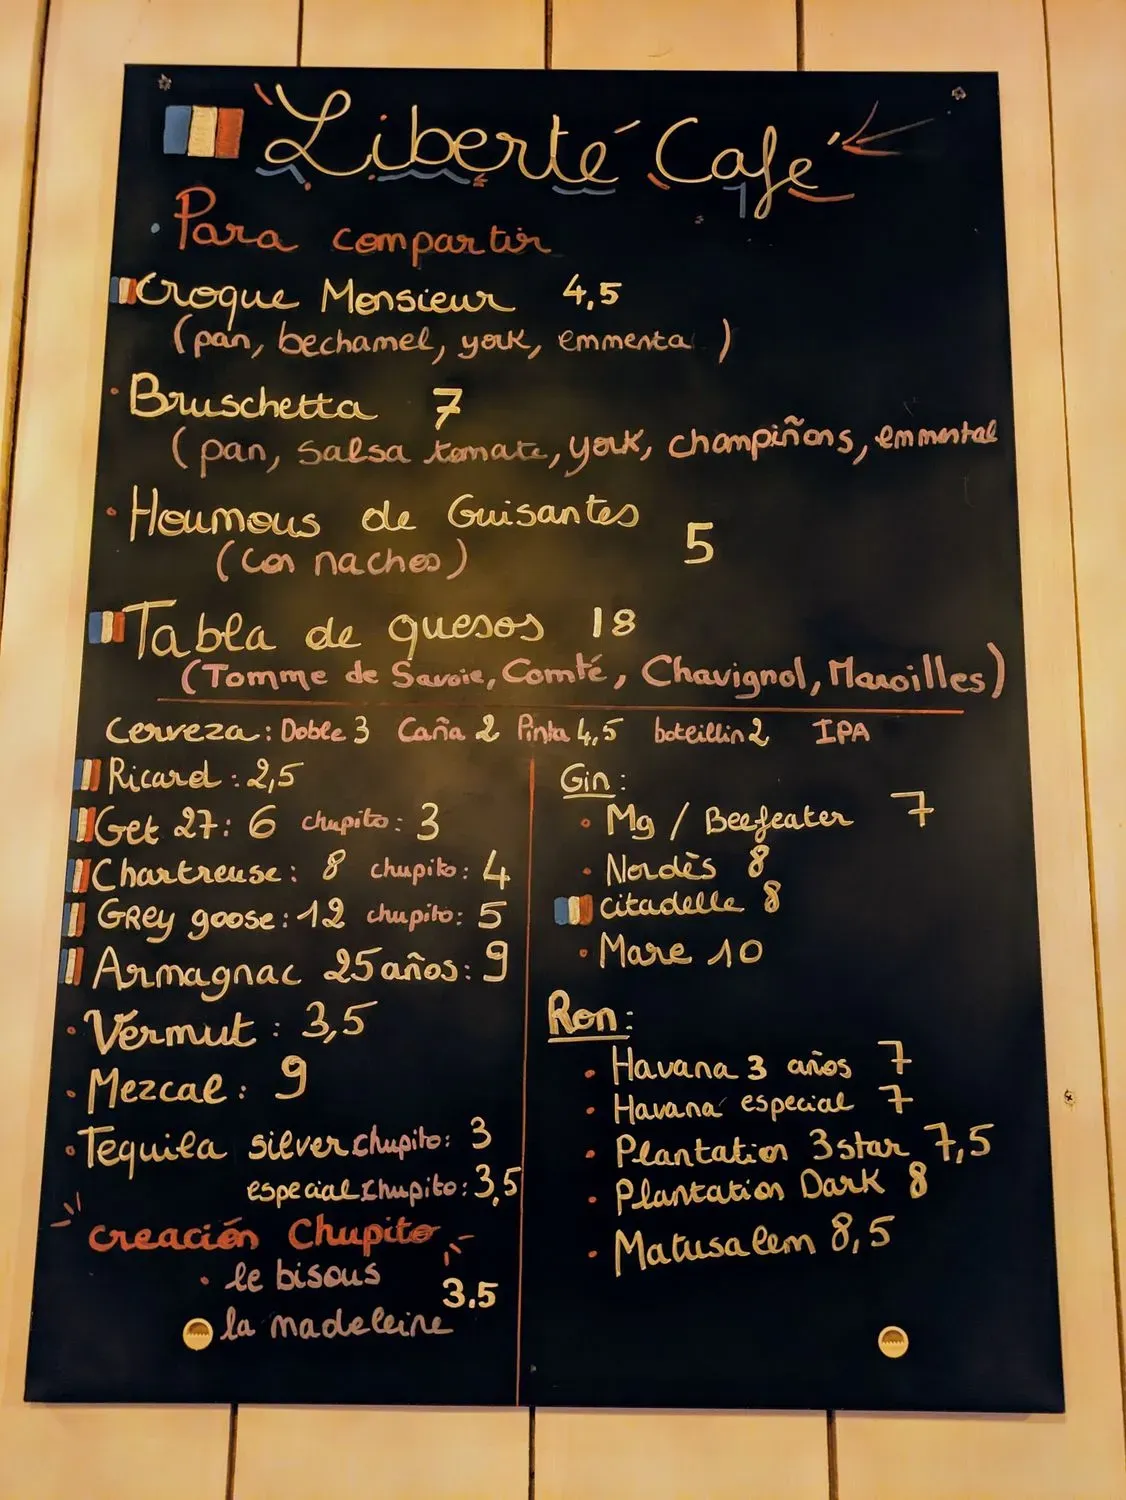 "Liberté Cafe"
Para compartir
Croque Monsieur 4,5
(pan, bechamel, york, emmenta )
Bruschetta 7
(pan, salsa tomate, york, champiñons, emmental
Houmous de Guisantes
5
(con nachos)
Tabla de quesos 18
(Tomme de Savoie, Comté, Chavignol, Maroilles)
Cerveza: Doble 3 Caña 2 Pinta 4,5 boteillin 2 IPA
Ricard: 2,5
Get 27: 6 chupito: 3
Chartreuse: 8 chupito: 4
Grey goose: 12 chupito: 5
Armagnac 25 años: 9
Vermut: 3,5
Mezcal: 9
Tequila silver chupito: 3
especial chupito: 3,5
creación Chupito
le bisous
3.5
la madeleine
Gin:
Mg / Beefeater 7
Nordès 8
citadelle 8
Mare 10
Ron:
Havana 3 años 7
Havana especial 7
Plantation 3 star 7,5
Plantation Dark 8
Matusalem 8,5